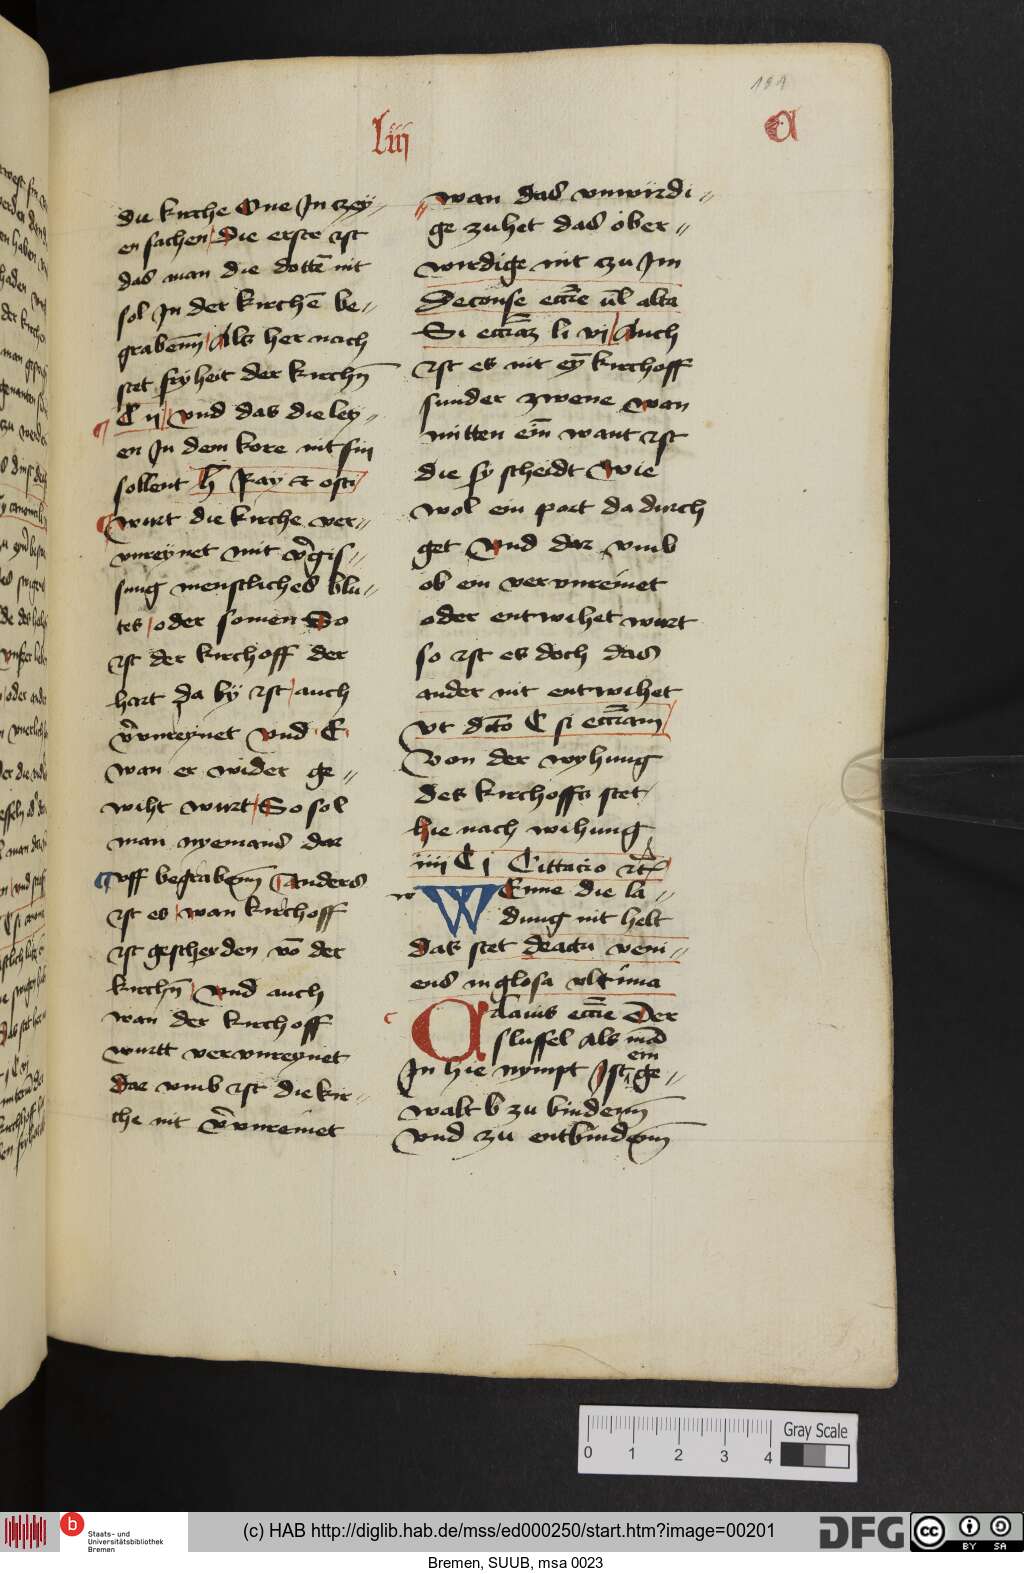 191
liii
A
die kirche One Jn czey〃
en sachen Die erste ist
das man die dottē nit
sol Jn der kirchē be〃
grabenn Als her nach
stet fryheit der kirchn̄
C ij vnd das die ley〃
en Jn dem kore nit sin
sollent
wurt die kirche ver〃
vnreynet mit v̄gis〃
sung menschliches blu〃
tes oder somen So
ist der kirchoff der
hart da by ist auch
v̄vnreynet vnd C
wan er wider ge〃
wiht wurt So sol
man nyemans dar
vff begrabenn anders
ist es wan kirchoff
ist gescheyden vō der
kirchn̄ vnd auch
wan der kirchoff
wurtt vervnreynet
dar vmb ist die kir〃
che nit v̄vnreinet
wan das vnwirdi〃
ge zuhet das ober〃
wirdige nit czu Jm
Deconse eccē vl̄ alta
Si eccīaz li vi Auch
ist es nit eȳ kirchoff
sunder zwene wan
mitten ein̄ want ist
die sy scheidt Wie
wol ein port da durch
get Vnd dar vmb
ob ein vervnreinet
oder entwihet wurt
so ist es doch das
ander nit entwihet
vt dc̄to C si eccīam
Von der wyhung
des kirchoffs stet
hie nach wihung
iiii C j Cittacio
w
WEnne die la〃
dung nit helt
das stet deactu veni〃
ens in glosa vltima
c
Clauis eccīe Der
slussel Als mā
Jn hie nympt Jst ein ge〃
walt b zu bindenn
vnd zu entbindenn
0 1 2 3 4
Gray Scale
b
Staats- und
Universitätsbibliothek
Bremen
(c) HAB http://diglib.hab.de/mss/ed000250/start.htm?image=00201
DFG
cc BY SA
Bremen, SUUB, msa 0023